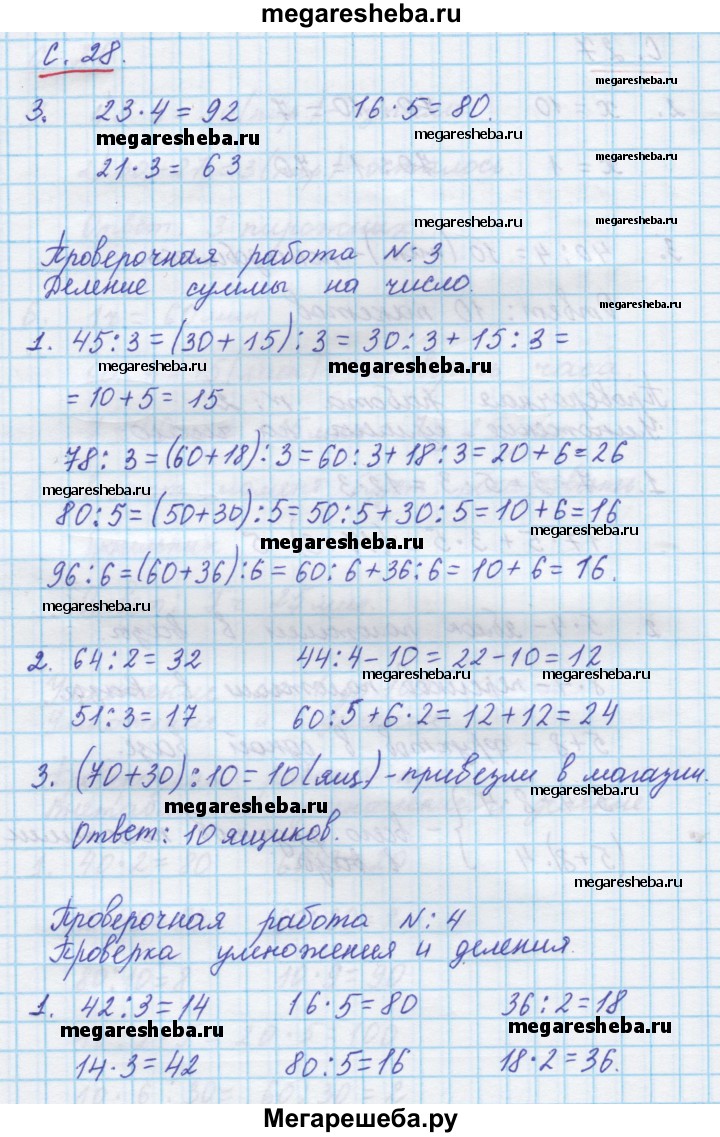 megaresheba.ru
с. 28.
megaresheba.ru
3. 23·4=92 16·5=80.
megaresheba.ru megaresheba.ru
21·3= 63 megaresheba.ru
megaresheba.ru megaresheba.ru
Проверочная работа №: 3
Деление суммы на число.
megaresheba.ru
1. 45:3=(30+15):3=30:3+15:3=
megaresheba.ru megaresheba.ru
=10+5= 15
78: 3=(60+18):3=60:3+18:3=20+6=26
megaresheba.ru
80:5=(50+30):5=50:5+30:5=10+6=16
megaresheba.ru
megaresheba.ru
96:6=(60+36):6=60:6+36:6=10+6=16.
megaresheba.ru
2. 64:2=32 44:4-10=22-10=12
megaresheba.ru
51:3=17 60:5+6·2=12+12=24
3. (70+30):10=10(ящ)-привезли в магазин.
megaresheba.ru megaresheba.ru
Ответ: 10 ящиков.
megaresheba.ru
Проверочная работа №: 4
Проверка умножения и деления.
1. 42:3=14 16·5=80 36:2=18
megaresheba.ru megaresheba.ru
14·3=42 80:5=16 18·2=36.
Мегарешеба.ру